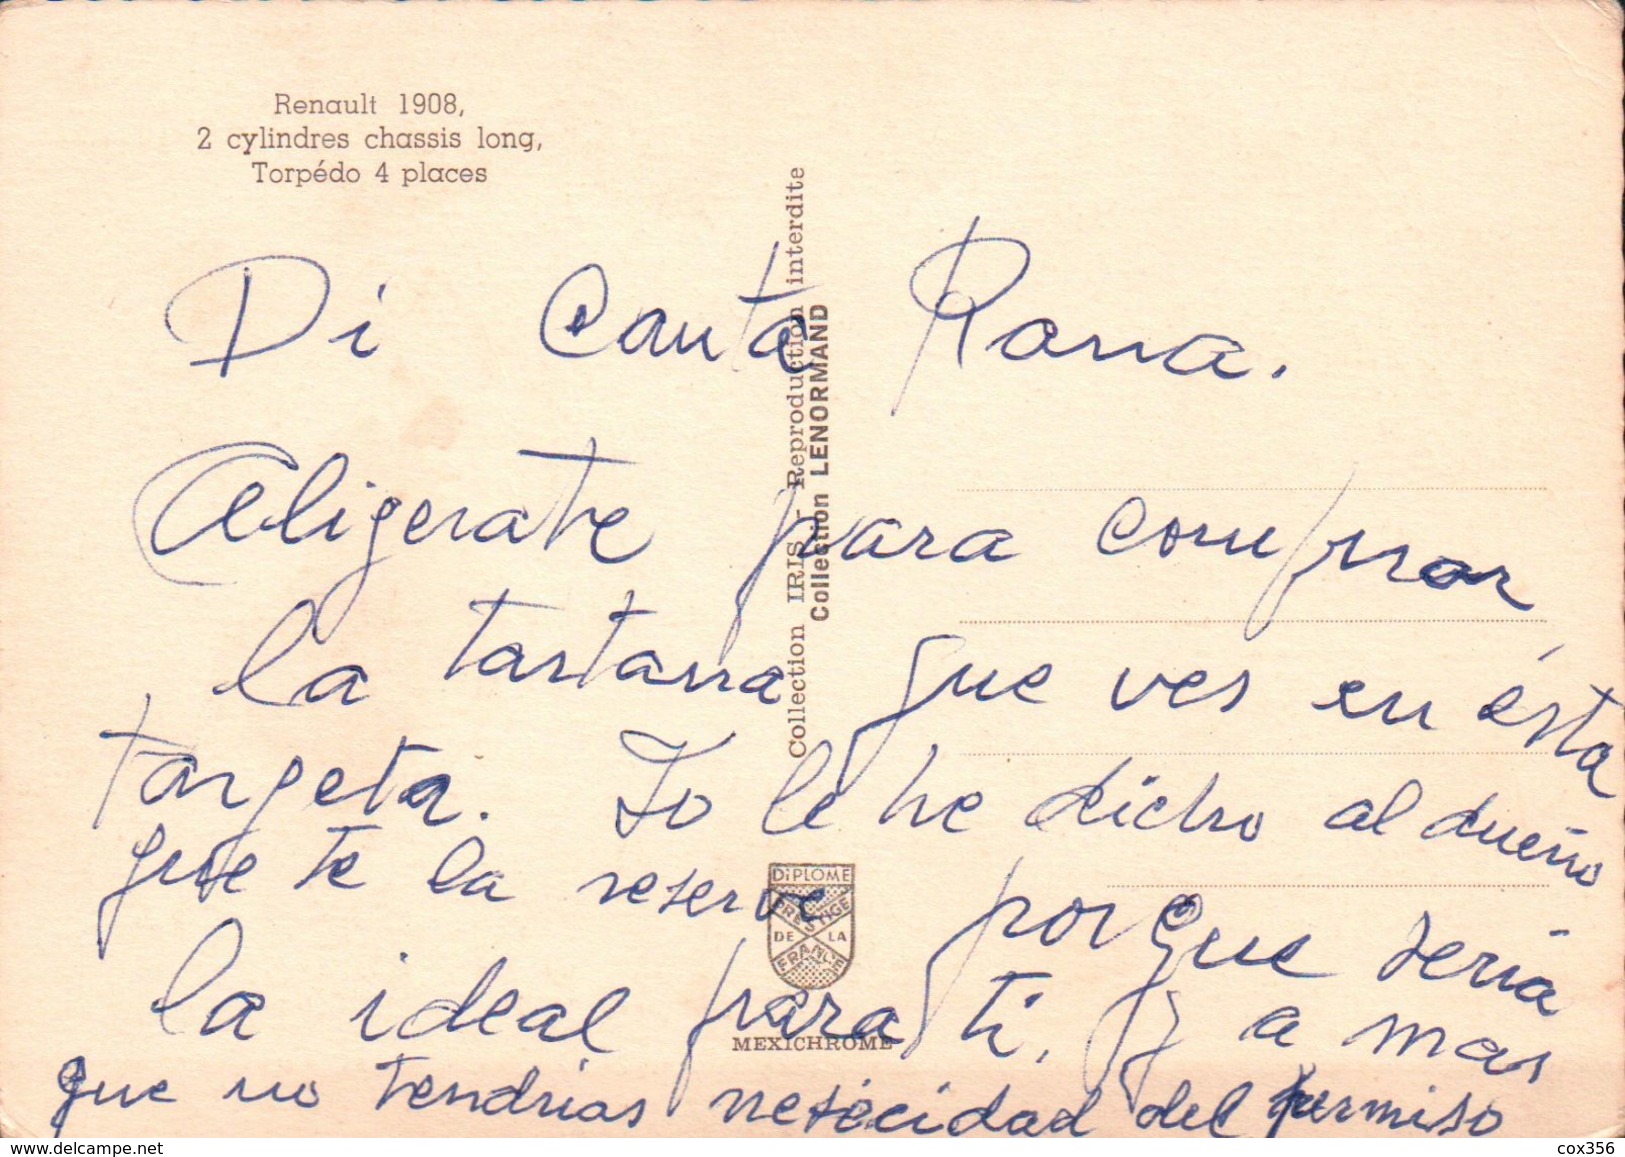 Renault 1908,
2 cylindres chassis long,
Torpédo 4 places
Collection IRIS - Reproduction interdite
Collection LENORMAND
Di Canta Rana.
Aligerate para comprar
la tartana que ves en ésta
targeta. Yo le he dicho al dueño
que te la reserve porque seria
la ideal para ti, y a mas
que no tendrias nesecidad del permiso
DiPLOME
PRESTIGE
DE LA
FRANCE
MEXICHROME
cox356